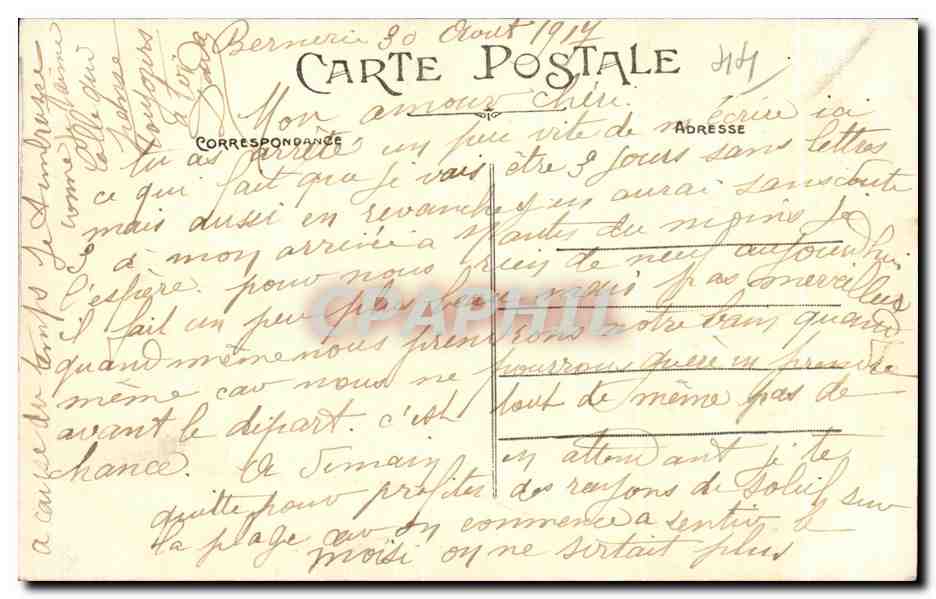 Bernerie 30 Aout 1917
CARTE POSTALE
44
Mon amour chéri.
CORRESPONDANCE
ADRESSE
tu as arrêté un peu vite de m'écrire ici
ce qui fait que je vais être 3 jours sans lettres
mais aussi en revanche j'en aurai sans doute
à mon arrivée à Nantes du moins je
l'espère. pour nous rien de neuf aujourd'hui
il fait un peu plus beau mais pas merveilleux
quand même nous prendrons notre bain quand
même car nous ne pourrons guère en prendre
avant le départ. c'est tout de même pas de
chance. A demain en attendant je te
quitte pour profiter des rayons de soleil sur
la plage car on commence a sentir le
moisi on ne sortait plus
a cause du temps Je t'embrasse
comme je t'aime
Celle qui
pense
toujours
à toi
CPAPHIL